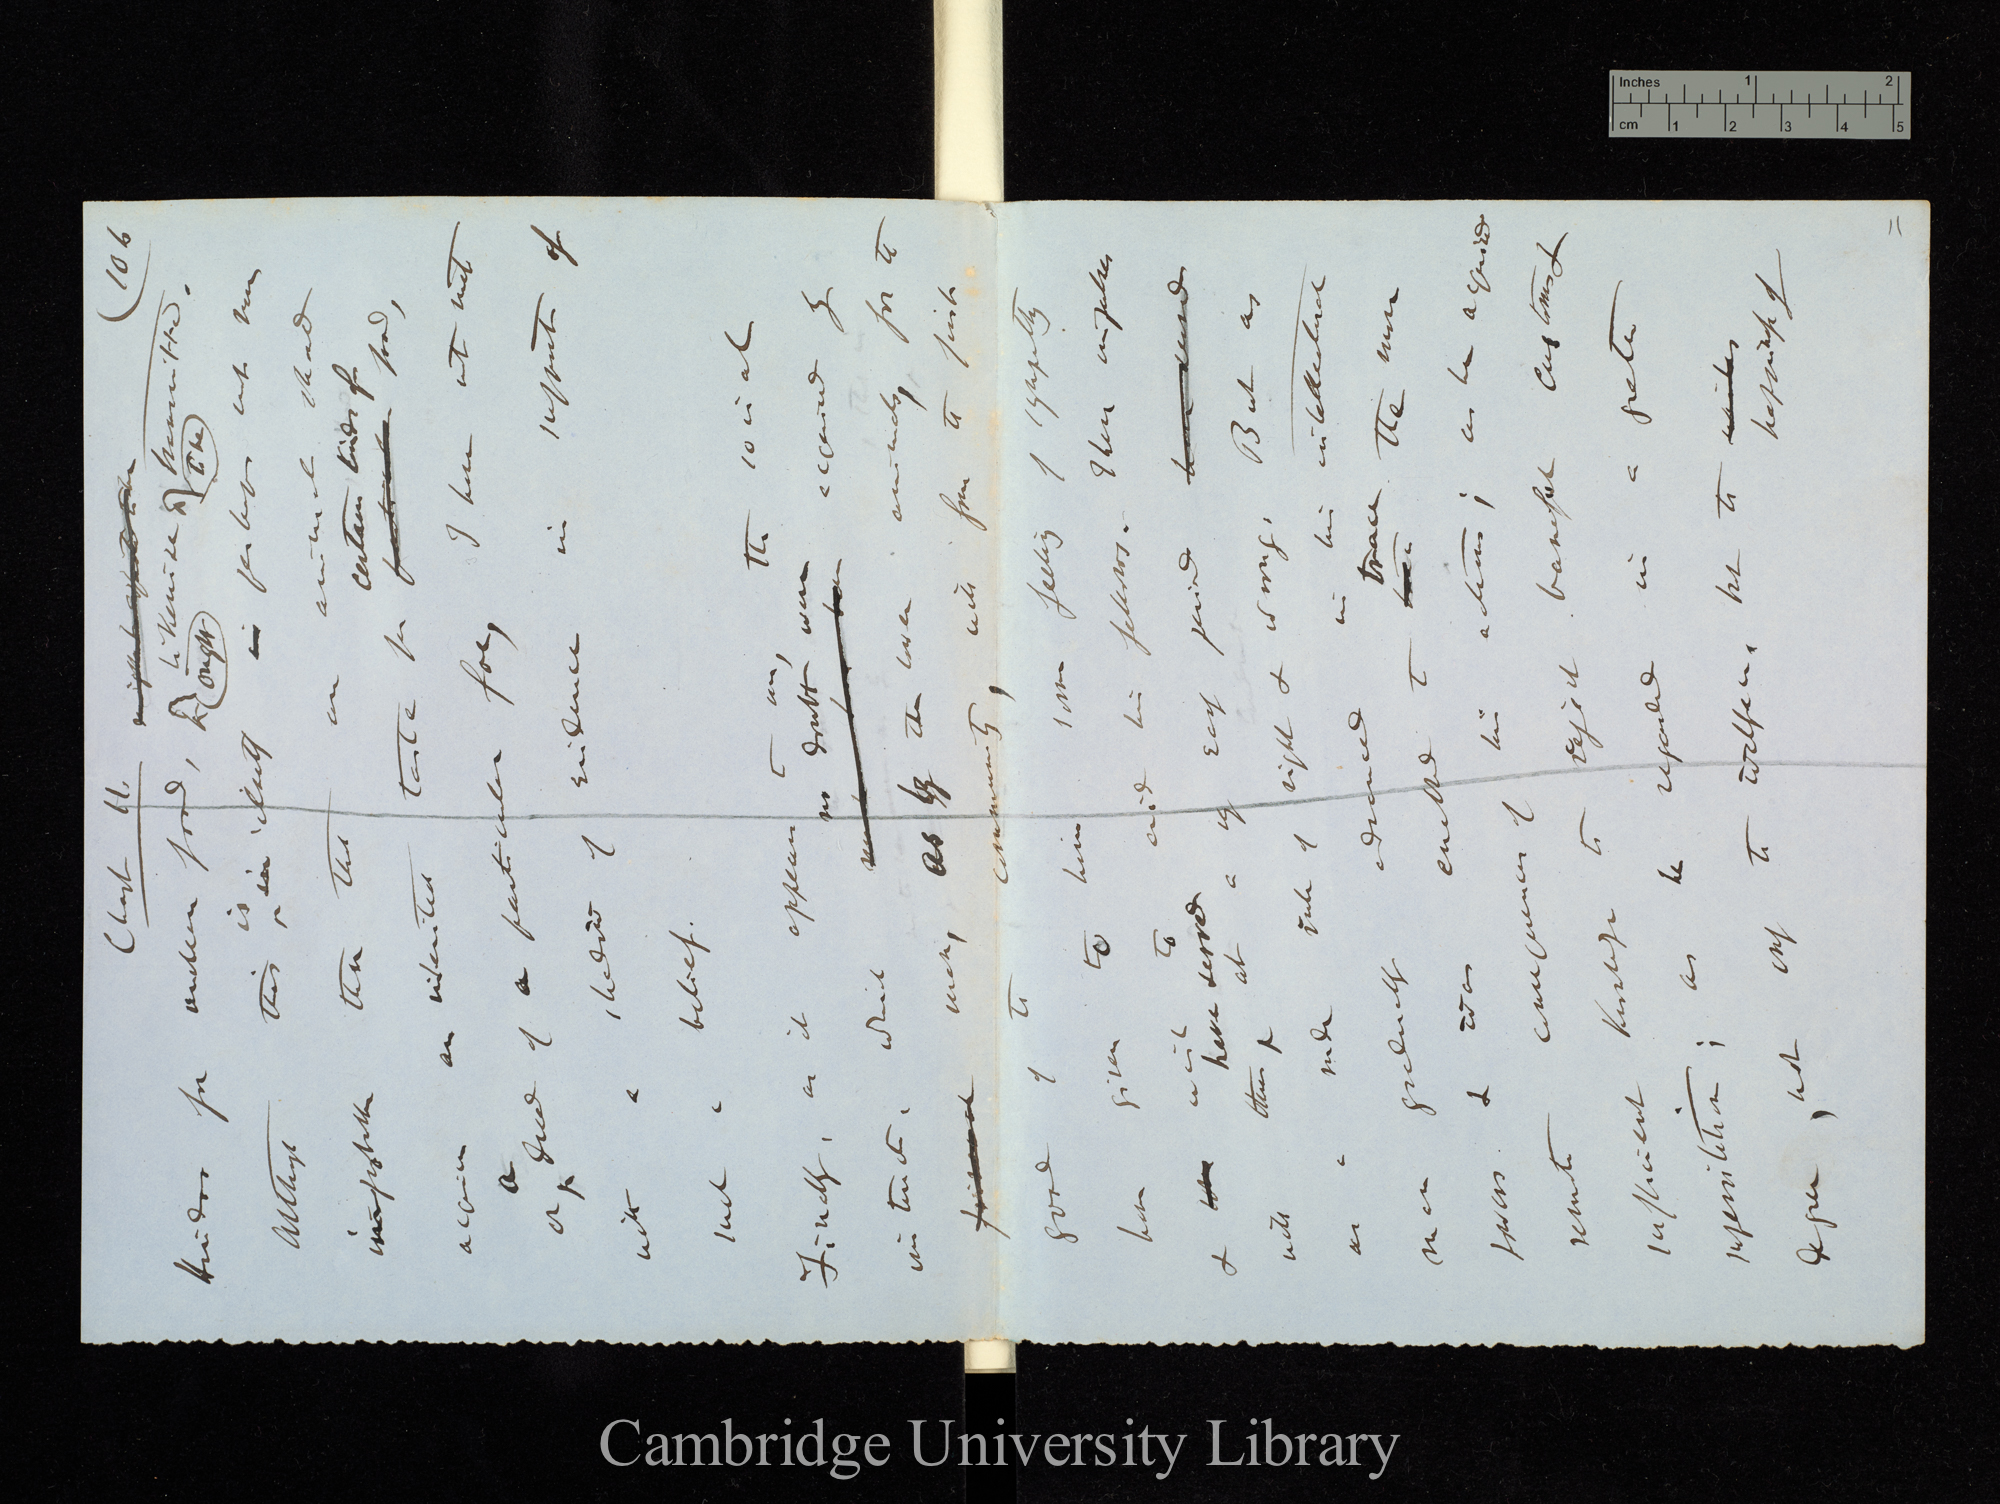 (106
Chap II.
Hindoo for unclean food, ought likewise to be transmitted.
Although this is in itself perhaps not more
improbable than that an animal should
acquire an inherited taste for certain kinds of food,
or a dread of a particular foe, I have not met
with a shadow of evidence in support of
such a belief.
Finally, as it appears to me, the social
instincts, which no doubt were acquired by
man, as by the lower animals, for the
good of the community, will from the first
have given to him some feeling of sympathy
& have served him at a very early period
with a rude rule of right & wrong. But as
man gradually advanced in his intellectual
powers & was enabled to trace the more
remote consequences of his actions; as he acquired
sufficient knowledge to reject baneful customs &
superstitions; as he regarded in a greater
degree, not only the welfare, but the happiness of
Inches 1 2
cm 1 2 3 4 5
Cambridge University Library